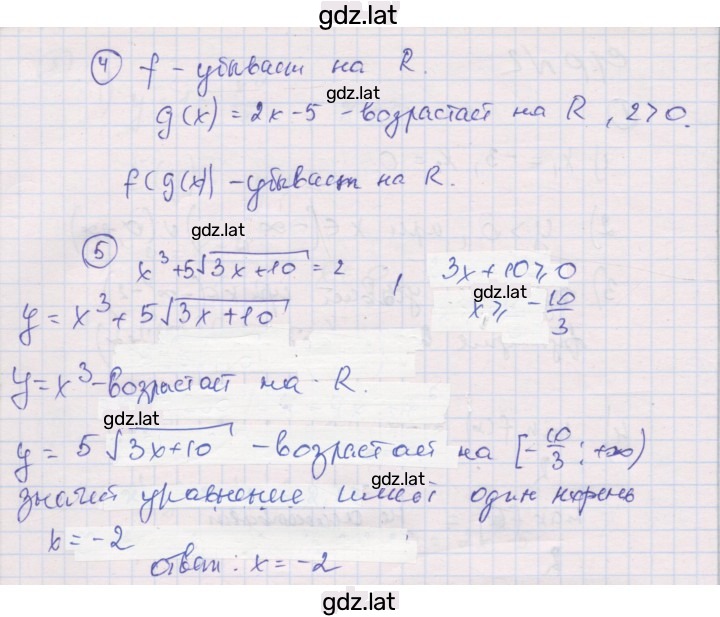 gdz.lat
④ f – убывает на R.
gdz.lat
g(x) = 2x – 5 – возрастает на R, 2>0.
f(g(x)) – убывает на R.
gdz.lat
⑤ x³+5√3x+10 = 2 , 3x+10⩾0
gdz.lat
y = x³ + 5√3x+10 x⩾ –10/3
y = x³ – возрастает на R.
gdz.lat
y = 5√3x+10 – возрастает на [–10/3; +∞)
gdz.lat
значит уравнение имеет один корень
x = –2
gdz.lat
ответ: x = –2
gdz.lat